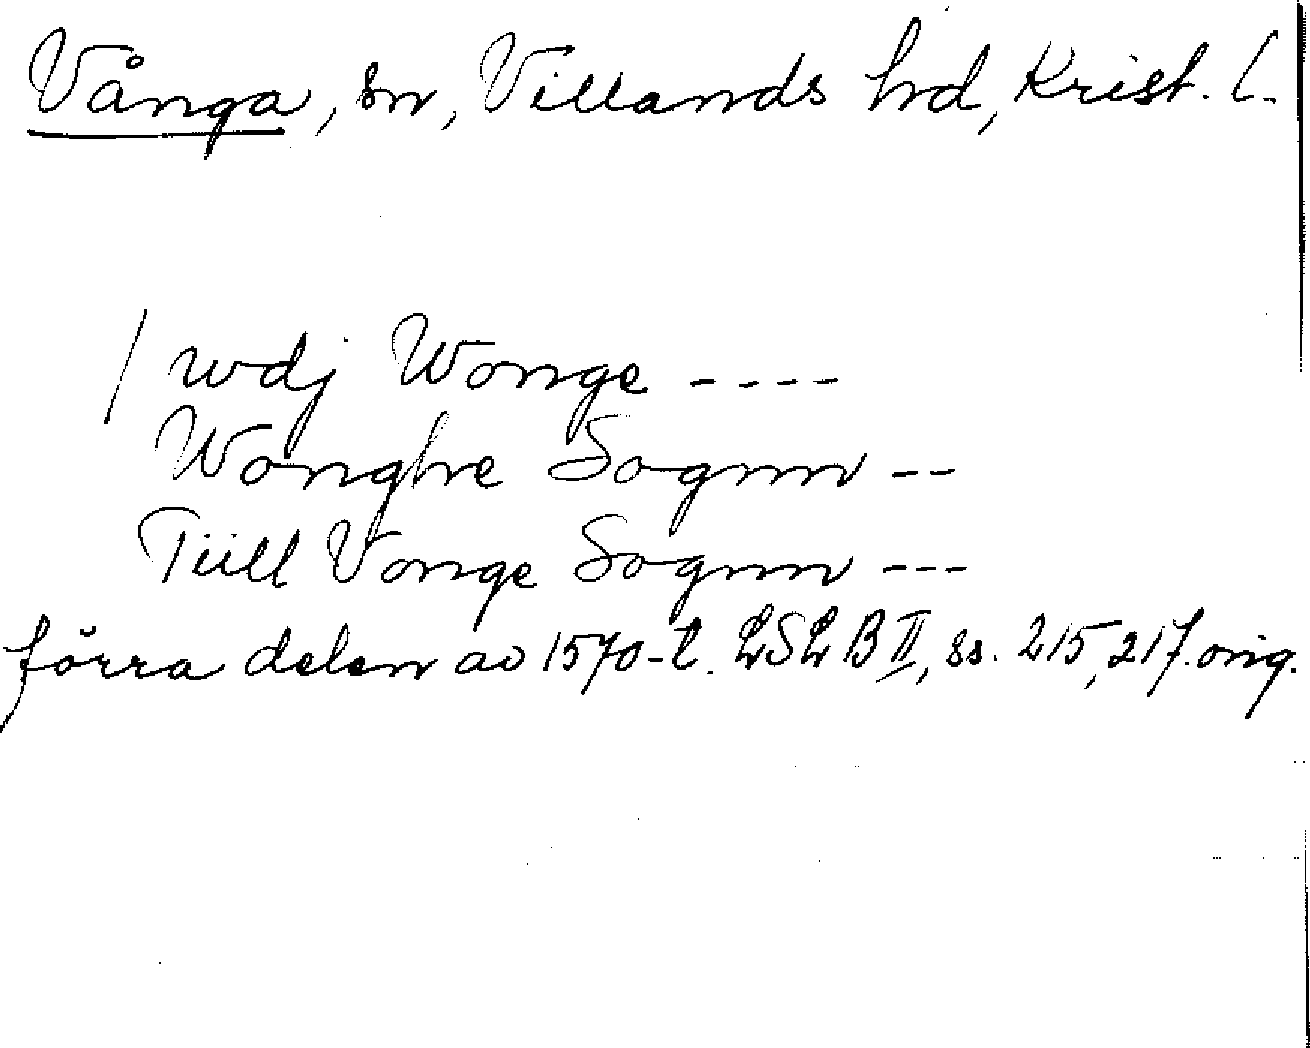 Vånga, sn, Villands hd, Krist. l.
/ wdj Wonge ----
Wonghe Sognn --
Tiill Vonge Sognn ---
förra delen av 1570-t. LSLB II, ss. 215, 217. orig.